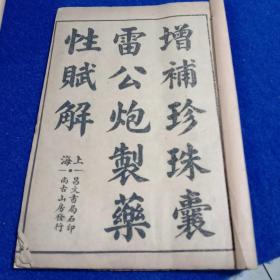 增補珍珠囊
雷公炮製藥
性賦解
上海
昌文書局石印
尚古山房發行